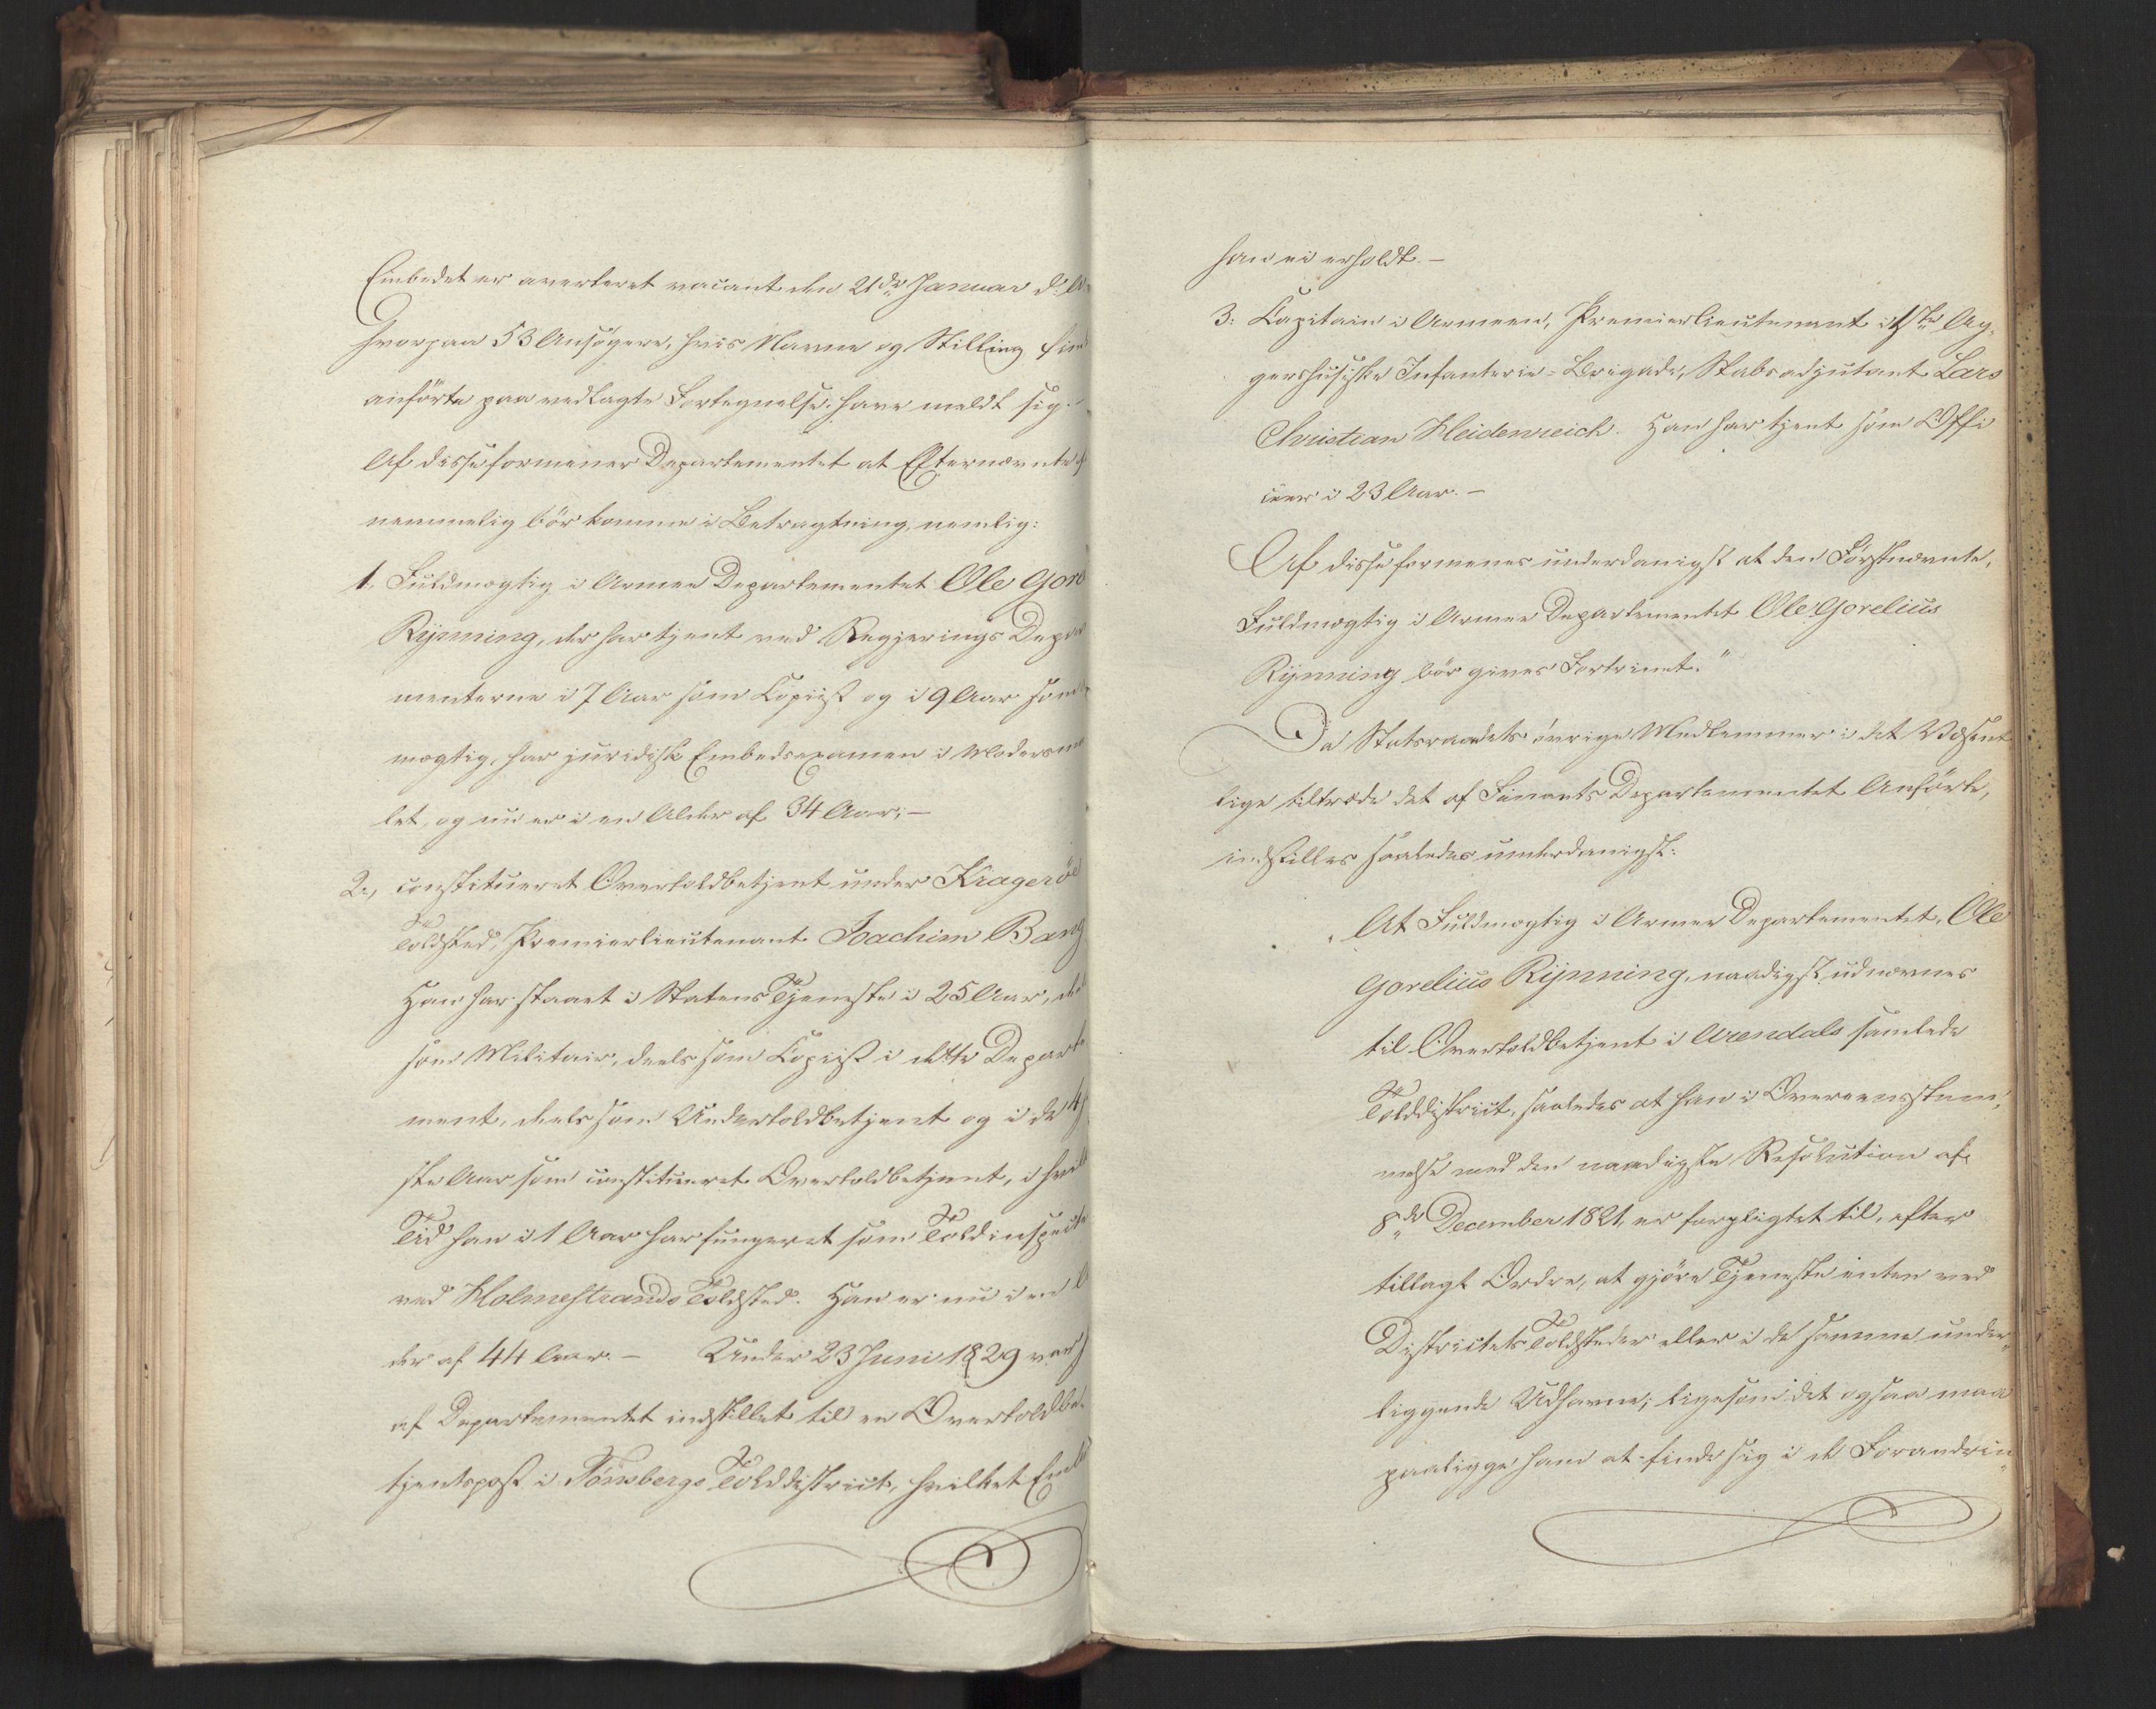 Embedet er averteret vacant den 21de Januar d. A.
hvorpaa 53 Ansögere, hvis Navne og Stilling fin
anförte paa vedlagte Fortegnelse, have meldt sig.
Af disse formener Departementet at Efternævnte
nemmelig bör komme i Betragtning, nemlig:
1. Fuldmægtig i Armee Departementet Ole Gore
Rynning, der har tjent ved Regjerings Depar
menterne i 7 Aar som Copiist og i 9 Aar som
mægtig, har juridisk Embedsexamen i Modersmaa
let, og nu er i en Alder af 34 Aar; —
2., constitueret Overtoldbetjent under Krageröe
Toldsted, Premierlieutenant Joachim Bang
Han har staaet i Statens Tjeneste i 25 Aar, deel
som Militair, deels som Copiist i dette Departe
ment, deels som Undertoldbetjent og i de 4
ste Aar som constitueret Overtoldbetjent, i hvilk
Tid han i 1 Aar har fungeret som Toldinspect
ved Holmestrands Toldsted. Han er nu i en
der af 44 Aar. — Under 23 Juni 1829 var
af Departementet indstillet til en Overtoldbe
tjentspost i Tönsbergs Tolddistrict, hvilket Emb
han ei erholdt. —
3. Capitain i Armeen, Premierlieutenant i 1ste Ag,
gershusiske Infanterie-Brigade, Stabsadjutant Lars
Christian Heidenreich. Han har tjent som Offi
ceer i 23 Aar. —
Af disse formenes underdanigst at den Förstnævnte,
Fuldmægtig i Armee Departementet Ole Gorelius
Rynning bör gives Fortrinet."
Da Statsraadets övrige Medlemmer i det Væsent
lige tiltræde det af Finants Departementet Anförte,
indstilles saaledes underdanigst:
At Fuldmægtig i Armee Departementet, Ole
Gorelius Rynning, naadigst udnævnes
til Overtoldbetjent i Arendals samlede
Tolddistrict, saaledes at han i Overeensstem,
melse med den naadigste Resolution af
8de December 1821, er forpligtet til, efter
tillagt Ordre, at gjöre Tjeneste enten ved
Districtets Toldsteder eller i de samme under
liggende Udhavne; ligesom det ogsaa maa
paaligge ham at finde sig i de Forandrin